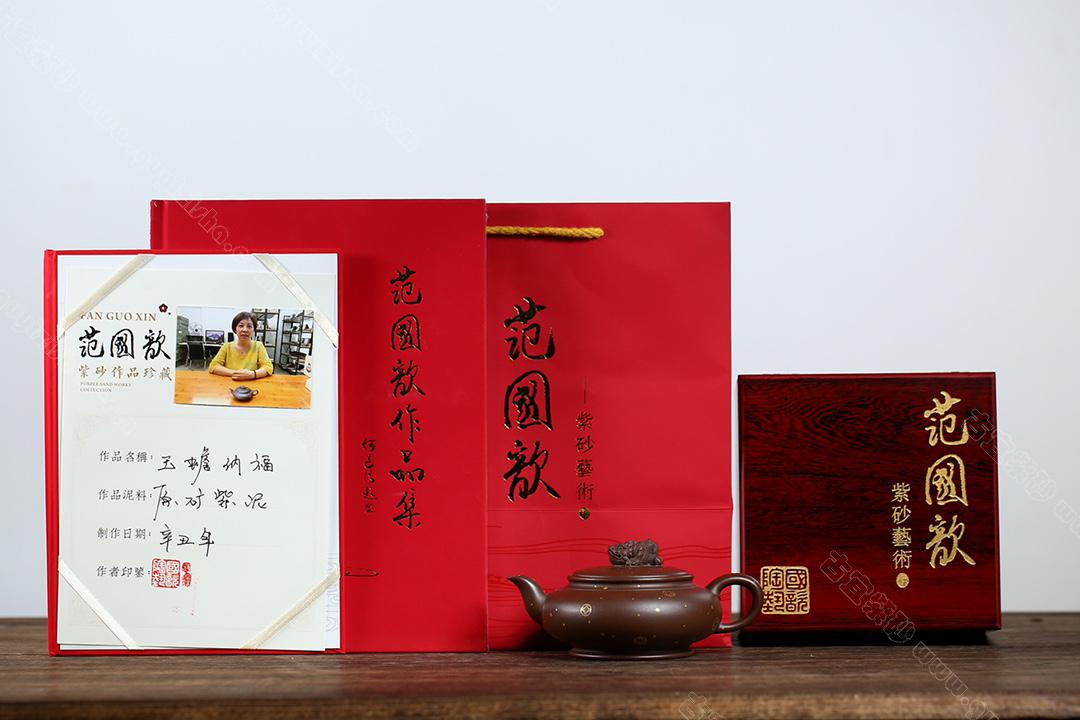 FAN GUO XIN
范國歆
紫砂作品珍藏
PURPLE SAND WORKS
COLLECTION
作品名稱：玉蟾纳福
作品泥料：原矿紫泥
制作日期：辛丑年
作者印鑒：
國歆
陶藝
范國歆作品集
范國歆
紫砂藝術
范國歆
紫砂藝術
國歆
陶藝